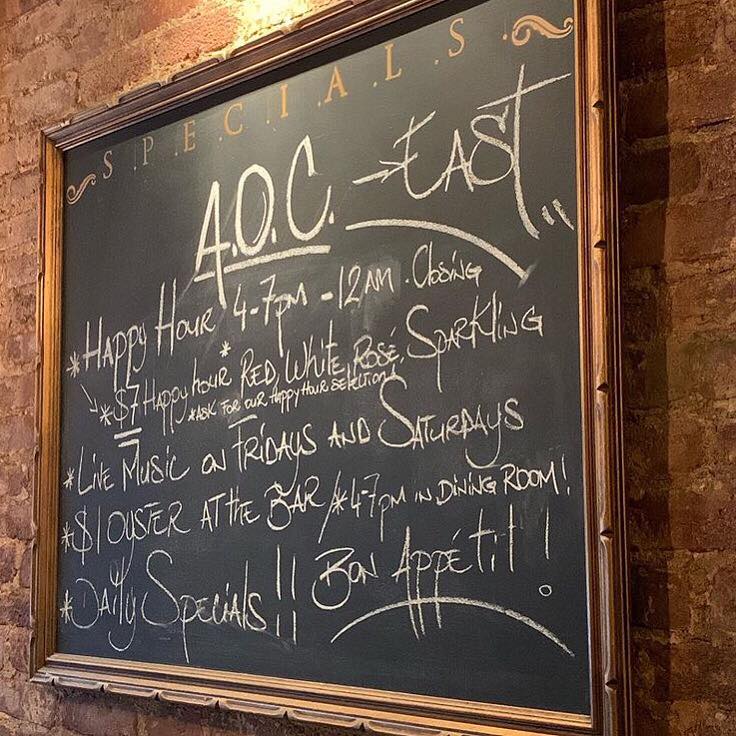 S.P.E.C.I.A.L.S.
A.O.C. → EAST
* HAPPY HOUR 4-7pm - 12AM. Closing
* $7 HAPPY hour* RED, White, Rosé, SPARKLING
*ASK FOR OUR HAPPY HOUR SELECTION!
* LIVE MUSIC ON FRIDAYS AND SATURDAYS
* $1 OYSTER AT the BAR / * 4-7pm IN DINING ROOM!
* DAILY SPECIALS!! BON APPÉTIT!